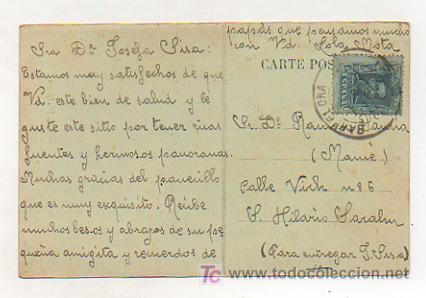 Sra Dª Josefa Sisa:
Estamos muy satisfechos de que
Vd. este bien de salud y le
guste este sitio por tener ricas
fuentes y hermosos panoramas.
Muchas gracias del panecillo
que es muy exquisito. Recibe
muchos besos y abrazos de su pe-
queña amigita y recuerdos de
papás que pensamos mucho
con Vd. Lola Mota
CARTE POS
BARCELONA
Sr. Dn. Ramon
(Manié)
Calle Vich nº 6
S. Hilario Sacalm
(Para entregar J. Sisa)
TC www.todocoleccion.net